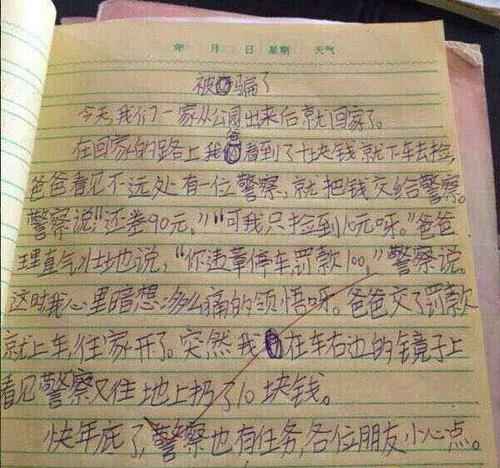 年 月 日 星期 天气
被骗了
今天我们一家从公园出来后就回家了。
在回家的路上我爸看到了十块钱就下车去捡,
爸爸看见不远处有一位警察,就把钱交给警察。
警察说:“还差90元。”“可我只捡到10元呀。”爸爸
理直气壮地说,“你违章停车罚款100,”警察说。
这时我心里暗想:多么痛的领悟呀。爸爸交了罚款
就上车往家开了。突然我在车右边的镜子上
看见警察又往地上扔了10块钱。
快年底了,警察也有任务,各位朋友小心点。